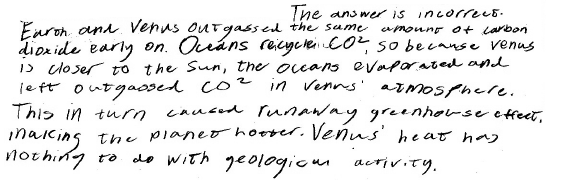 The answer is incorrect.
Earth and Venus outgassed the same amount of carbon
dioxide early on. Oceans recycle CO², so because Venus
is closer to the Sun, the oceans evaporated and
left outgassed CO² in Venus' atmosphere.
This in turn caused runaway greenhouse effect,
making the planet hotter. Venus' heat has
nothing to do with geological activity.